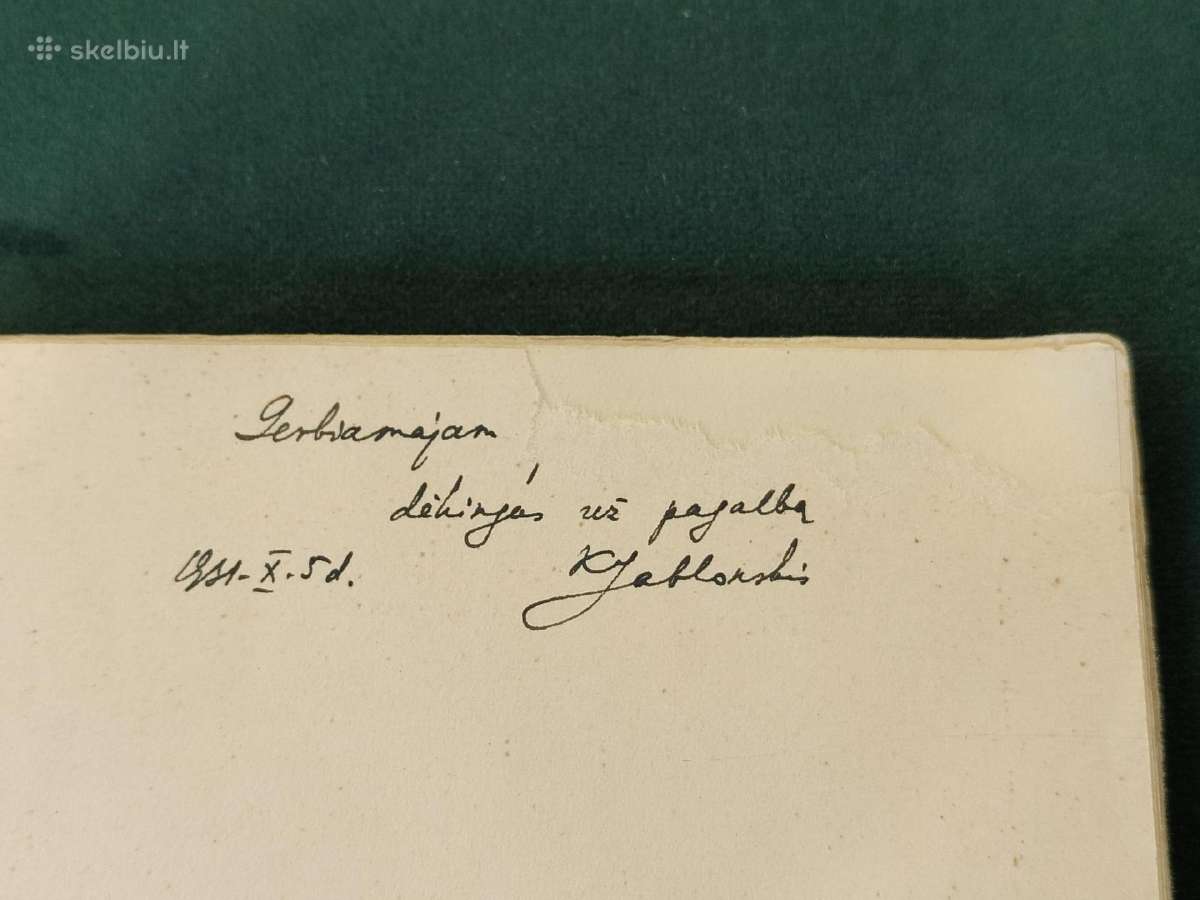 skelbiu.lt
Gerbiamajam
dėkingas už pagalbą
1931-X-5d.
KJablonskis